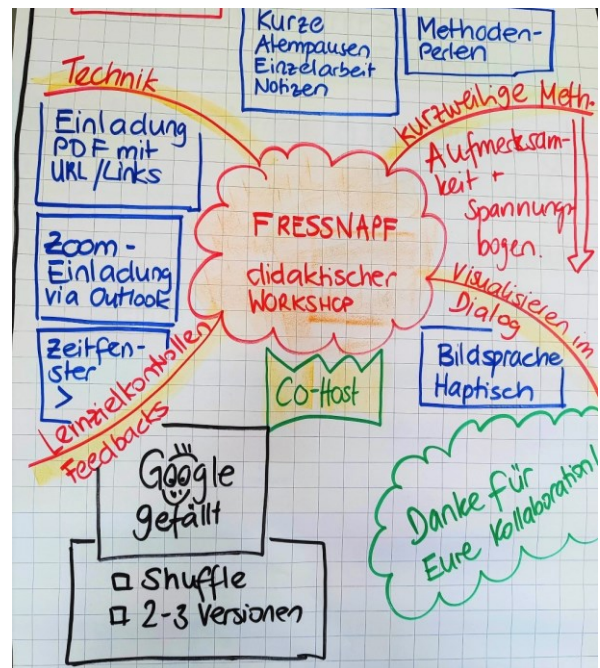 Kurze
Atempausen
Einzelarbeit
Notizen
Methoden-
Perlen
Technik
Einladung
PDF mit
URL/Links
Zoom-
Einladung
via Outlook
Zeitfen-
ster
>
kurzweilige Meth.
Aufmerksam-
keit +
Spannungs-
bogen.
FRESSNAPF
didaktischer
WORKSHOP
Visualisieren im
Dialog
Bildsprache
Haptisch
Co-Host
Lernzielkontrollen
Feedbacks
Google
gefällt
Shuffle
2-3 Versionen
Danke für
Eure Kollaboration!